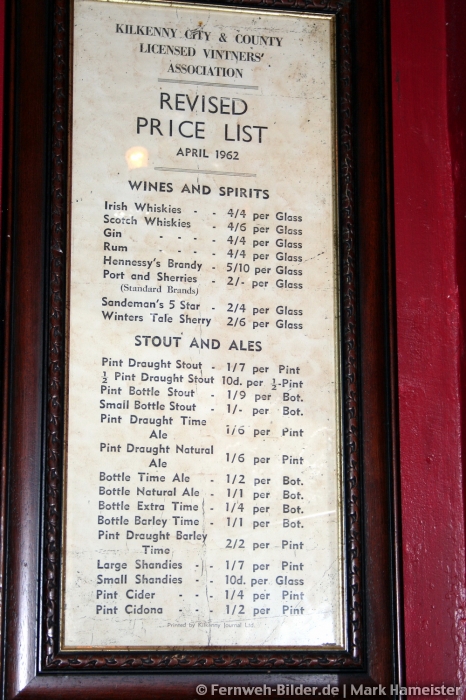 KILKENNY CITY & COUNTY
LICENSED VINTNERS'
ASSOCIATION
REVISED
PRICE LIST
APRIL 1962
WINES AND SPIRITS
Irish Whiskies - - 4/4 per Glass
Scotch Whiskies - - 4/6 per Glass
Gin - - - - 4/4 per Glass
Rum - - - - 4/4 per Glass
Hennessy's Brandy - 5/10 per Glass
Port and Sherries - 2/- per Glass
(Standard Brands)
Sandeman's 5 Star - 2/4 per Glass
Winters Tale Sherry 2/6 per Glass
STOUT AND ALES
Pint Draught Stout - 1/7 per Pint
½ Pint Draught Stout 10d. per ½-Pint
Pint Bottle Stout - 1/9 per Bot.
Small Bottle Stout - 1/- per Bot.
Pint Draught Time
Ale 1/6 per Pint
Pint Draught Natural
Ale 1/6 per Pint
Bottle Time Ale - 1/2 per Bot.
Bottle Natural Ale - 1/1 per Bot.
Bottle Extra Time - 1/4 per Bot.
Bottle Barley Time - 1/1 per Bot.
Pint Draught Barley
Time 2/2 per Pint
Large Shandies - - 1/7 per Pint
Small Shandies - 10d. per Glass
Pint Cider - - - 1/4 per Pint
Pint Cidona - - - 1/2 per Pint
Printed by Kilkenny Journal Ltd.
© Fernweh-Bilder.de | Mark Hameister